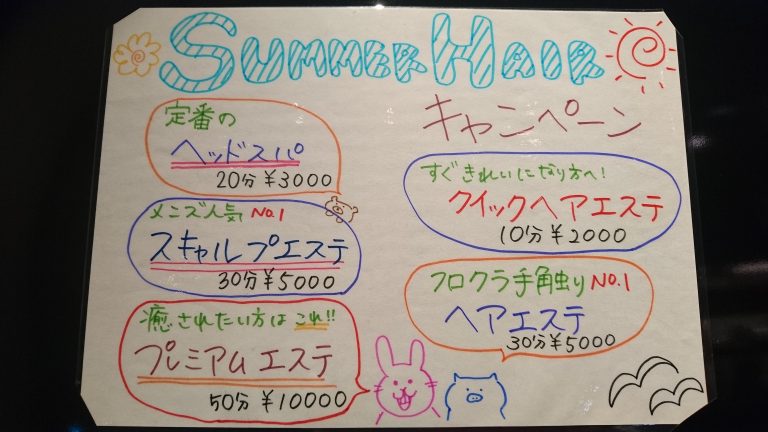 SUMMER HAIR
キャンペーン
定番の
ヘッドスパ
20分 ¥3000
メンズ人気 No.1
スキャルプエステ
30分 ¥5000
癒されたい方は これ!!
プレミアムエステ
50分 ¥10000
すぐきれいになり方へ!
クイックヘアエステ
10分 ¥2000
フロクラ手触り No.1
ヘアエステ
30分 ¥5000